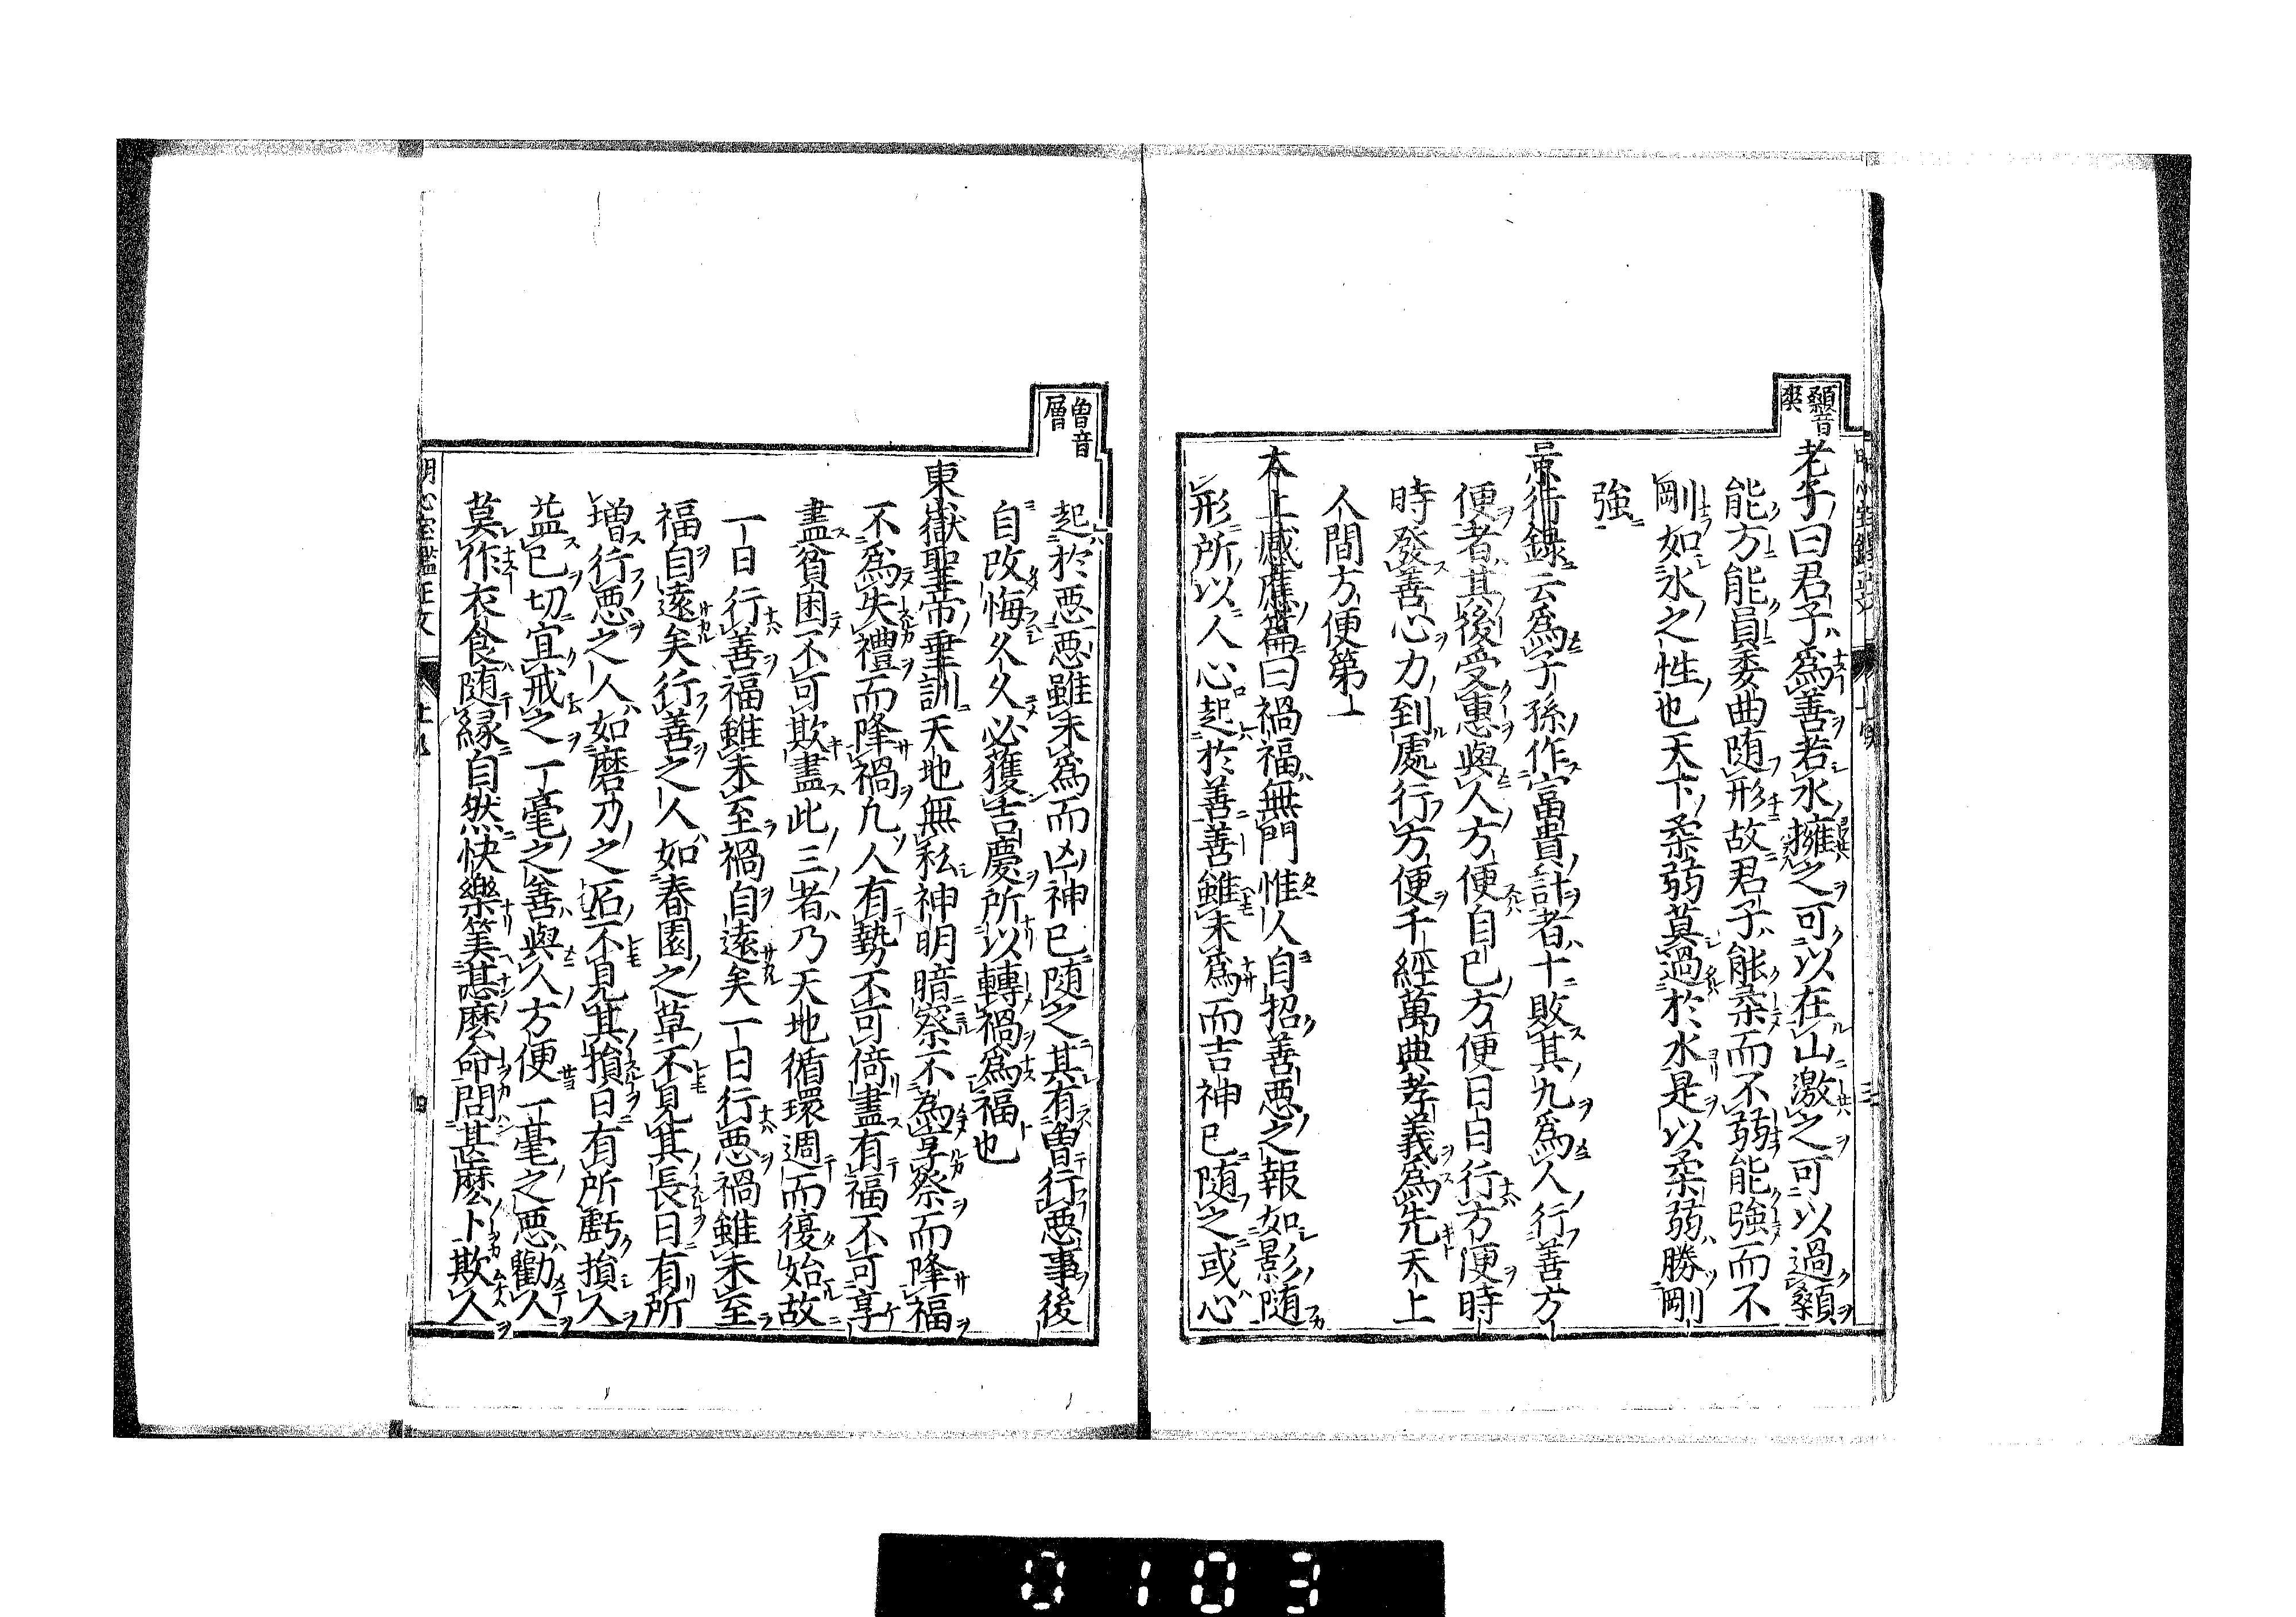 顙音
爽
老子曰君子爲善若水擁之可以在山激之可以過顙
能方能員委曲随形故君子能柔而不弱能強而不
剛如水之性也天下柔弱莫過於水是以柔弱勝剛
強
景行録云爲子孫作富貴計者十敗其九爲人行善方
便者其後受惠與人方便自已方便日日行方便時
時發善心力到處行方便千經萬典孝義爲先天上
人間方便第一
太上感應篇曰禍福無門惟人自招善悪之報如影随
形所以人心起於善善雖未爲而吉神已随之或心
曽音
層
起於悪悪雖未爲而凶神已随之其有曽行悪事後
自改悔久久必獲吉慶所以轉禍爲福也
東嶽聖帝垂訓天地無私神明暗察不為享祭而降福
不爲失禮而降禍凡人有勢不可倚盡有福不可享
盡貧困不可欺盡此三者乃天地循環週而復始故
一日行善福雖未至禍自遠矣一日行悪禍雖未至
福自遠矣行善之人如春園之草不見其長日有所
増行悪之人如磨刀之石不見其損日有所虧損人
益已切宜戒之一毫之善與人方便一毫之悪勸人
莫作衣食随縁自然快樂筭甚麼命問甚麼卜欺人
0103